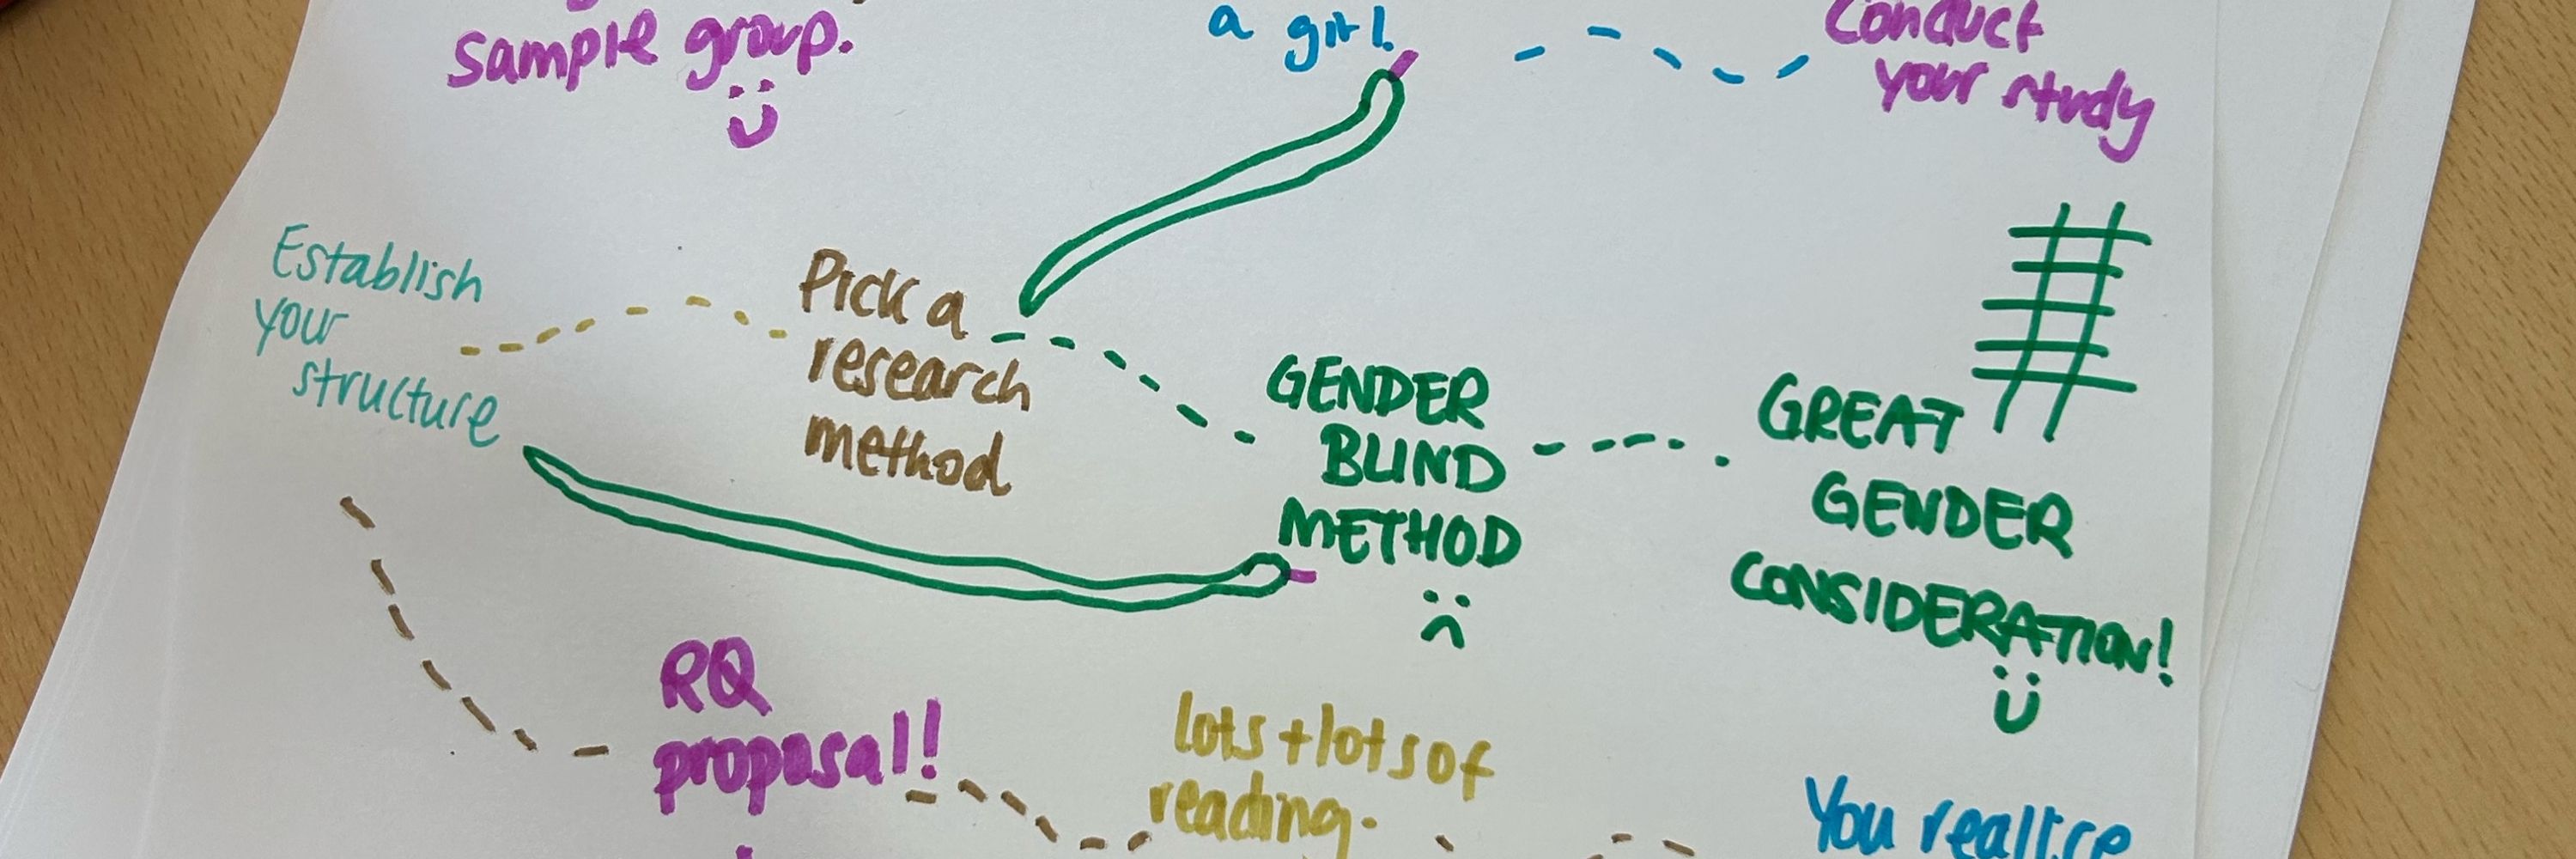 sample group.
a girl.
Conduct
your study
Establish
your
structure
Pick a
research
method
GENDER
BLIND
METHOD
GREAT
GENDER
CONSIDERATION!
RQ
proposal!
lots + lots of
reading.
You realise